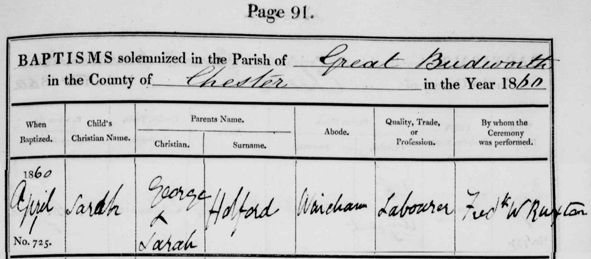 Page 91.
BAPTISMS solemnized in the Parish of Great Budworth
in the County of Chester in the Year 1860
When Baptized.
Child's Christian Name.
Parents Name.
Christian.
Surname.
Abode.
Quality, Trade, or Profession.
By whom the Ceremony was performed.
1860
April
No. 725.
Sarah
George
&
Sarah
Holford
Wincham
Labourer
Fredk W Ruxton